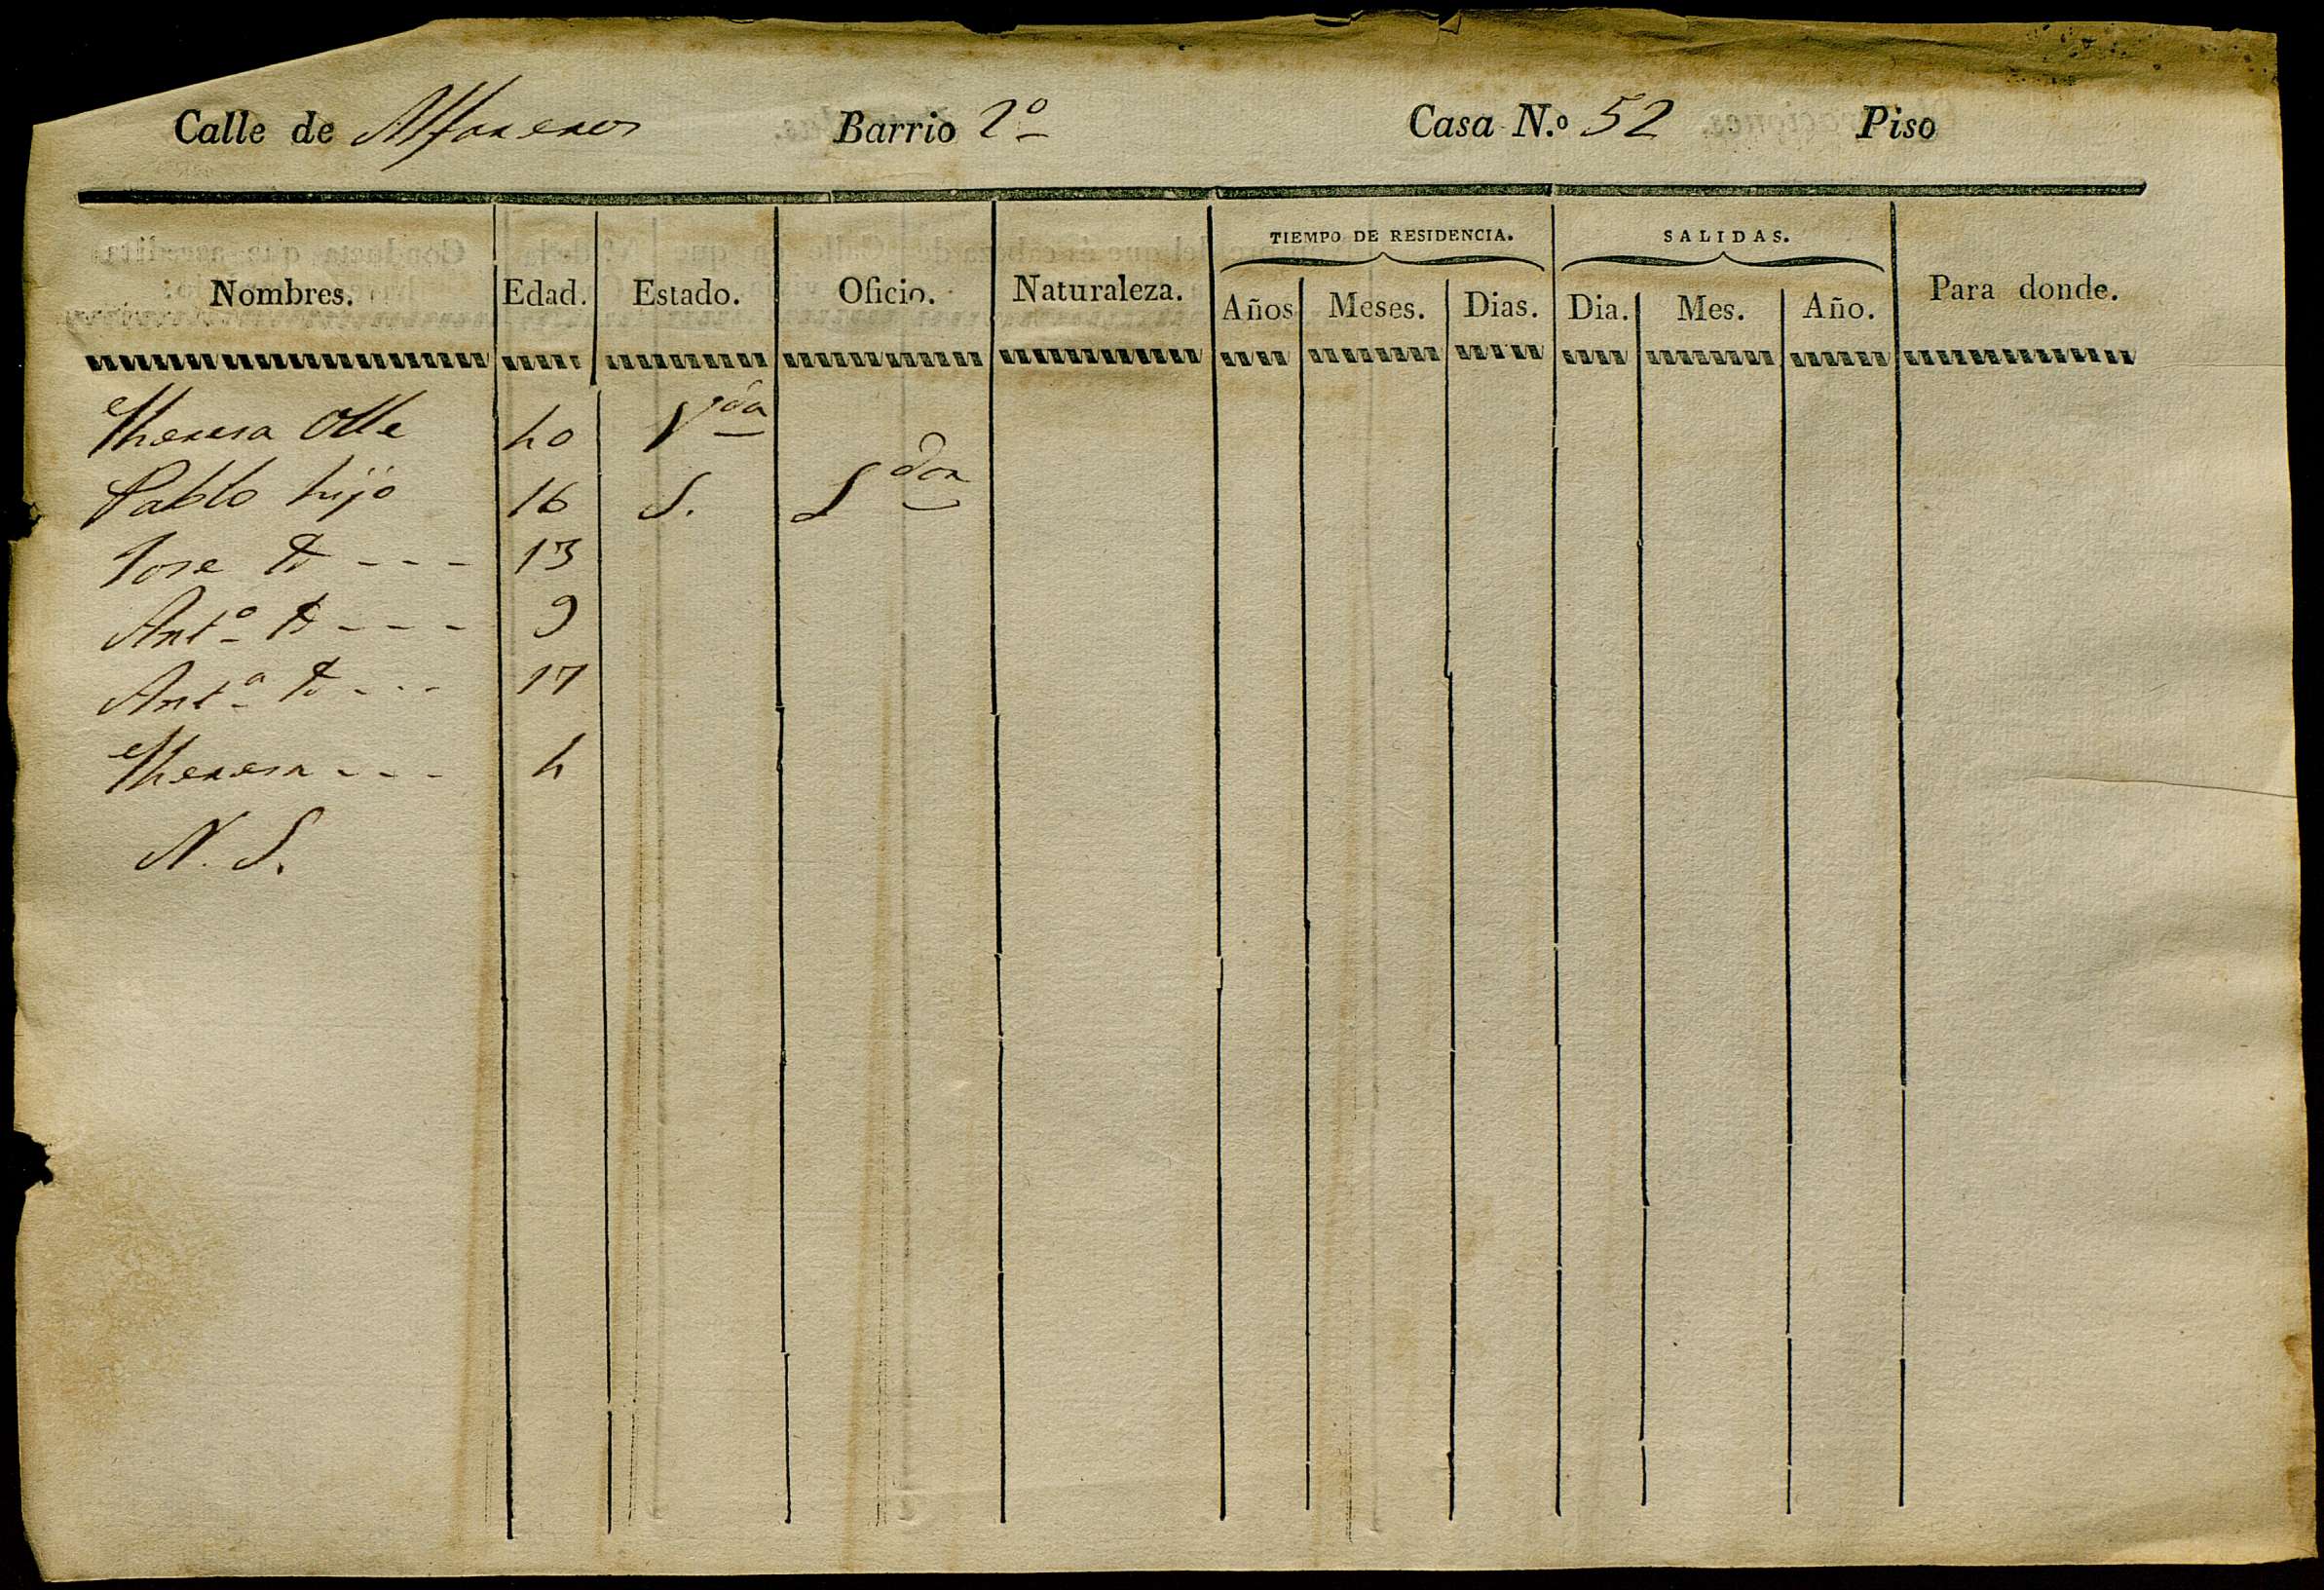 Calle de Alfareros Barrio 2º Casa N.º 52 Piso
TIEMPO DE RESIDENCIA. SALIDAS.
Nombres. Edad. Estado. Oficio. Naturaleza. Años Meses. Dias. Dia. Mes. Año. Para donde.
Theresa Olle 40 Vda
Pablo hijo 16 S. Ldor
Jose Yd --- 13
Antº Yd --- 9
Antª Yd --- 17
Theresa --- 4
N. S.